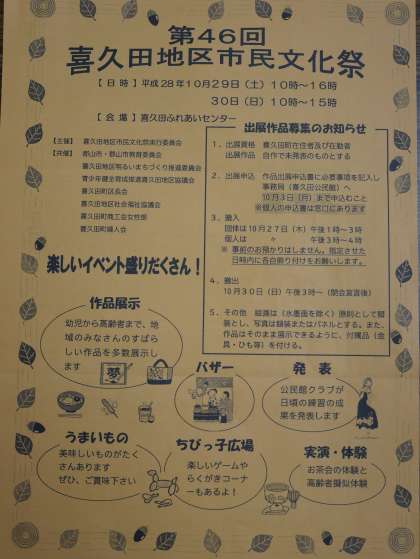 第46回
喜久田地区市民文化祭
【日時】平成28年10月29日(土)10時～16時
30日(日)10時～15時
【会場】喜久田ふれあいセンター
【主催】 喜久田地区市民文化祭実行委員会
【共催】 郡山市・郡山市教育委員会
喜久田地区明るいまちづくり推進委員会
青少年健全育成推進喜久田地区協議会
喜久田町区長会
喜久田地区社会福祉協議会
喜久田町商工会女性部
喜久田町婦人会
出展作品募集のお知らせ
1．出展資格 喜久田町在住者及び在勤者
出展作品 自作で未発表のものとする
2．出展申込 作品出展申込書に必要事項を記入し
事務局(喜久田公民館)へ
10月3日(月)まで申込むこと
※個人の申込書は窓口にあります
3．搬入
団体は10月27日(木)午後1時～3時
個人は 〃 午後3時～4時
※ 事前のお預かりはしません。指定させた
日時内に各自飾り付けをお願いします。
4．搬出
10月30日(日)午後3時～(閉会宣言後)
5．その他 絵画は(水墨画を除く)原則として額
装とし、写真は額装またはパネルとする。また、
作品はそのまま展示できるように、付属品(金
具・ひも等)を付ける。
楽しいイベント盛りだくさん！
作品展示
幼児から高齢者まで、地
域のみなさんのすばら
しい作品を多数展示し
ます
夢
バザー
発表
公民館クラブが
日頃の練習の成
果を発表します
うまいもの
美味しいものがたく
さんあります
ぜひ、ご賞味下さい
ちびっ子広場
楽しいゲームや
らくがきコーナ
ーもあるよ！
実演・体験
お茶会の体験と
高齢者擬似体験